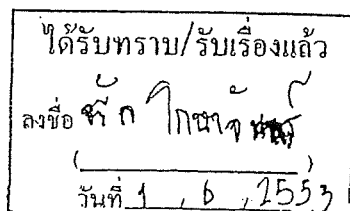 ได้รับทราบ/รับเรื่องแล้ว
ลงชื่อ
(                    )
วันที่ 1 , 6 , 2553